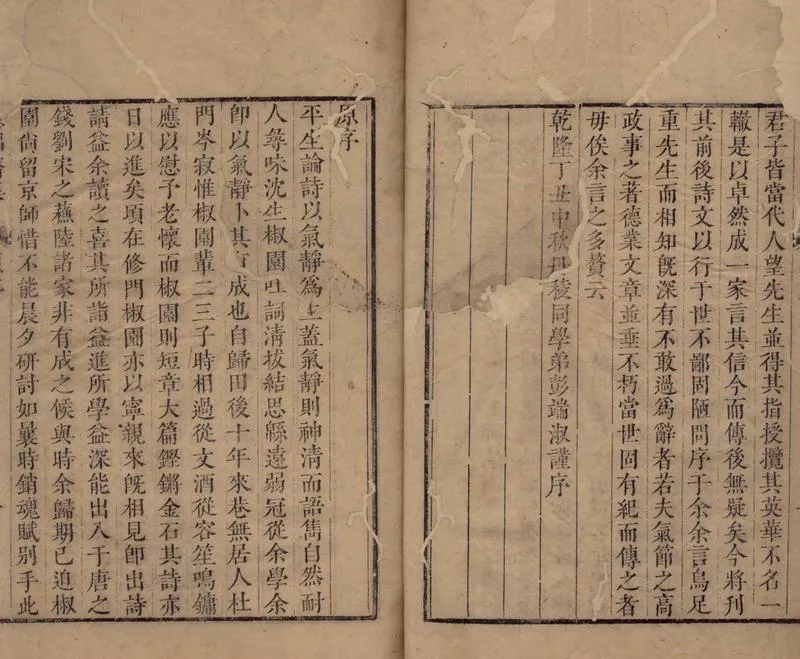 君子皆當代人望先生並得其指授攬其英華不名一
轍是以卓然成一家言其信今而傳後無疑矣今將刊
其前後詩文以行于世不鄙固陋問序于余余言烏足
重先生而相知既深有不敢過為辭者若夫氣節之高
政事之著德業文章並垂不朽當世固有紀而傳之者
毋俟余言之多贅云
乾隆丁丑中秋丹稜同學弟彭端淑謹序
原序
平生論詩以氣靜為上蓋氣靜則神清而語雋自然耐
人尋味沈生椒園吐詞清拔結思緜遠弱冠從余學余
卽以氣靜卜其有成也自歸田後十年來巷無居人杜
門岑寂惟椒園輩二三子時相過從文酒從容笙鳴鏞
應以慰予老懷而椒園則短章大篇鏗鏘金石其詩亦
日以進矣項在修門椒園亦以寧親來既相見卽出詩
請益余讀之喜其所詣益進所學益深能出入于唐之
錢劉宋之蘇陸諸家非有成之候與時余歸期已迫椒
園尙留京師惜不能晨夕研討如曩時銷魂賦別手此